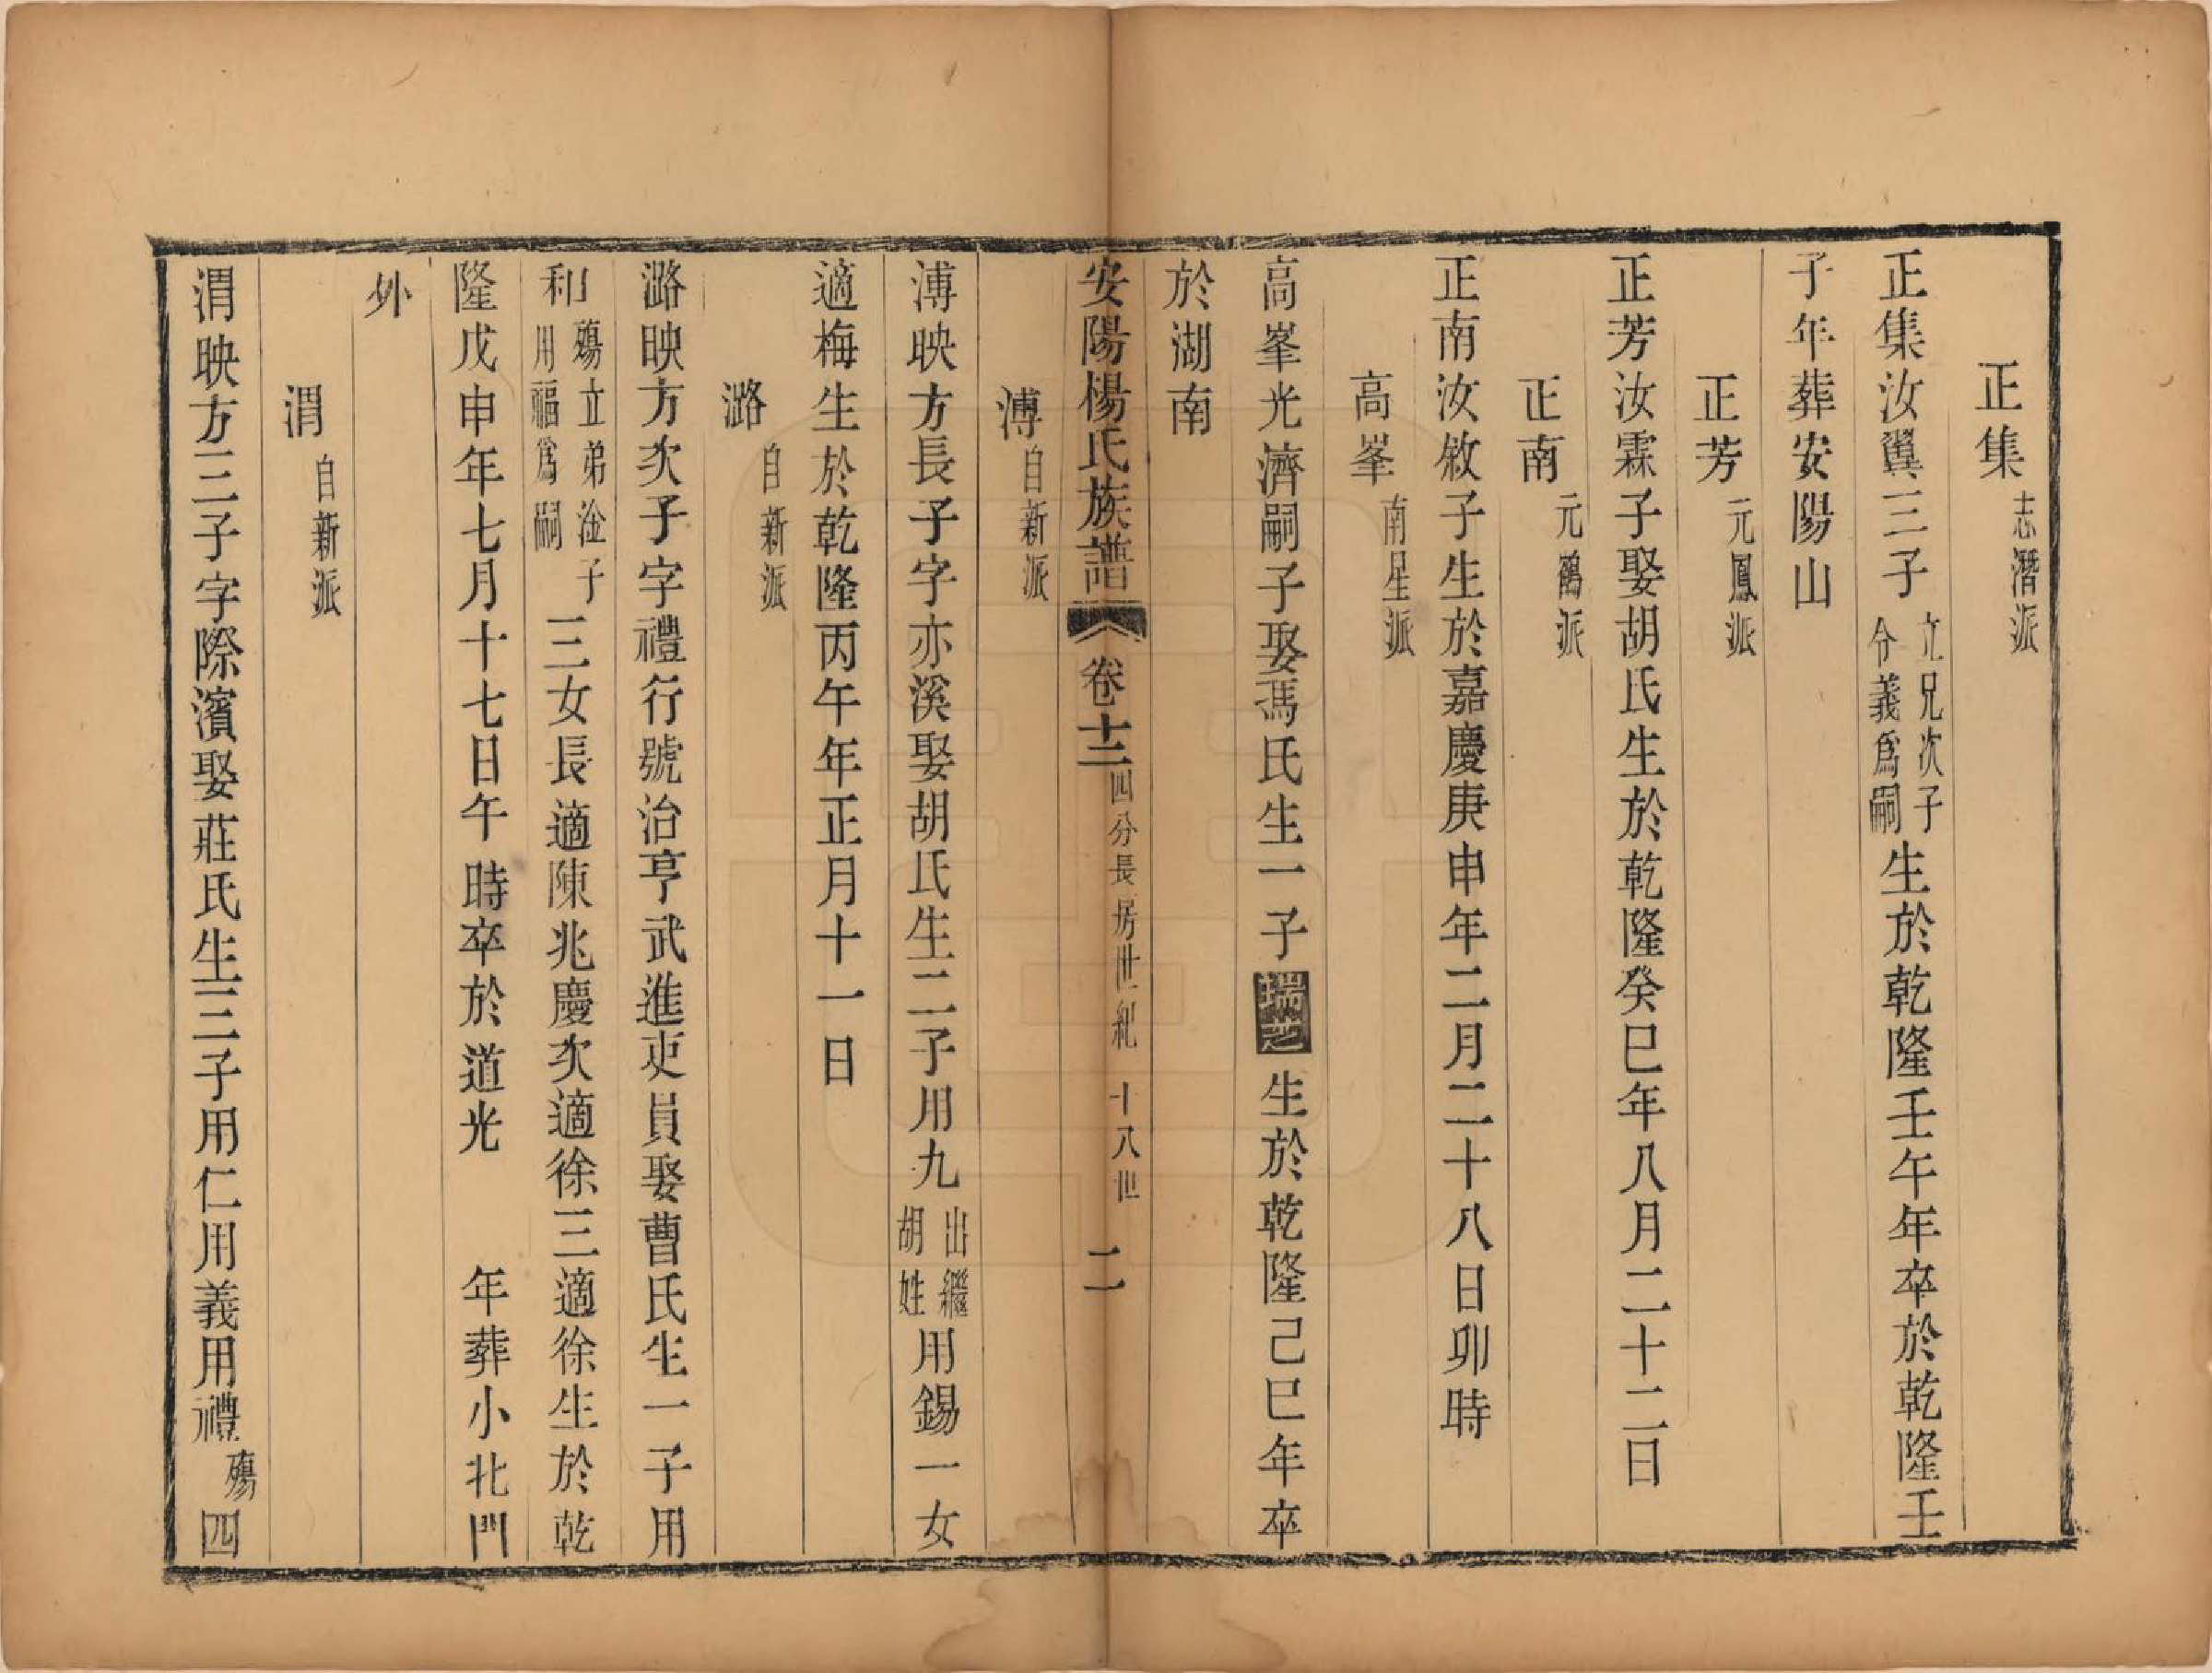 正集志潛派
正集汝翼三子立兄次子分義爲嗣生於乾隆壬午年卒於乾隆壬
子年葬安陽山
正芳元鳳派
正芳汝霖子娶胡氏生於乾隆癸巳年八月二十二日
正南元鶴派
正南汝敘子生於嘉慶庚申年二月二十八日卯時
高峯南星派
高峯光濟嗣子娶馮氏生一子瑞芝生於乾隆己巳年卒
於湖南
安陽楊氏族譜卷十二四分長房世紀十八世二
溥自新派
溥映方長子字亦溪娶胡氏生二子用九出繼胡姓用錫一女
適梅生於乾隆丙午年正月十一日
潞自新派
潞映方次子字禮行號治亨武進吏員娶曹氏生一子用
利殤立弟淦子用福爲嗣三女長適陳兆慶次適徐三適徐生於乾
隆戊申年七月十七日午時卒於道光 年葬小北門
外
渭自新派
渭映方三子字際濱娶莊氏生三子用仁用義用禮殤四